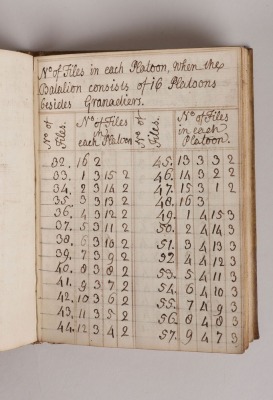 No. of Files in each Platoon, when the
Batalion consists of 16 Platoons
besides Granadiers.
No. of Files. No. of Files in each Platoon No. of Files. No. of Files in each Platoon.
32. 16 2 45. 13 3 3 2
33. 1 3 15 2 46. 14 3 2 2
34. 2 3 14 2 47. 15 3 1 2
35. 3 3 13 2 48. 16 3
36. 4 3 12 2 49. 1 4 15 3
37. 5 3 11 2 50. 2 4 14 3
38. 6 3 10 2 51. 3 4 13 3
39. 7 3 9 2 52 4 4 12 3
40. 8 3 8 2 53. 5 4 11 3
41. 9 3 7 2 54. 6 4 10 3
42. 10 3 6 2 55. 7 4 9 3
43. 11 3 5 2 56. 8 4 8 3
44. 12 3 4 2 57. 9 4 7 3